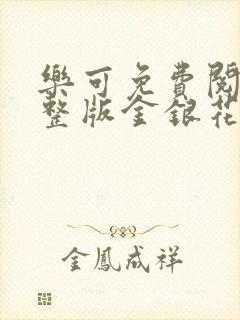 樂可免費閱
整版金銀花
金鳳成祥